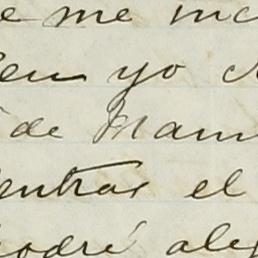 e me inc
en yo c
de Mam
entras el
odré ale